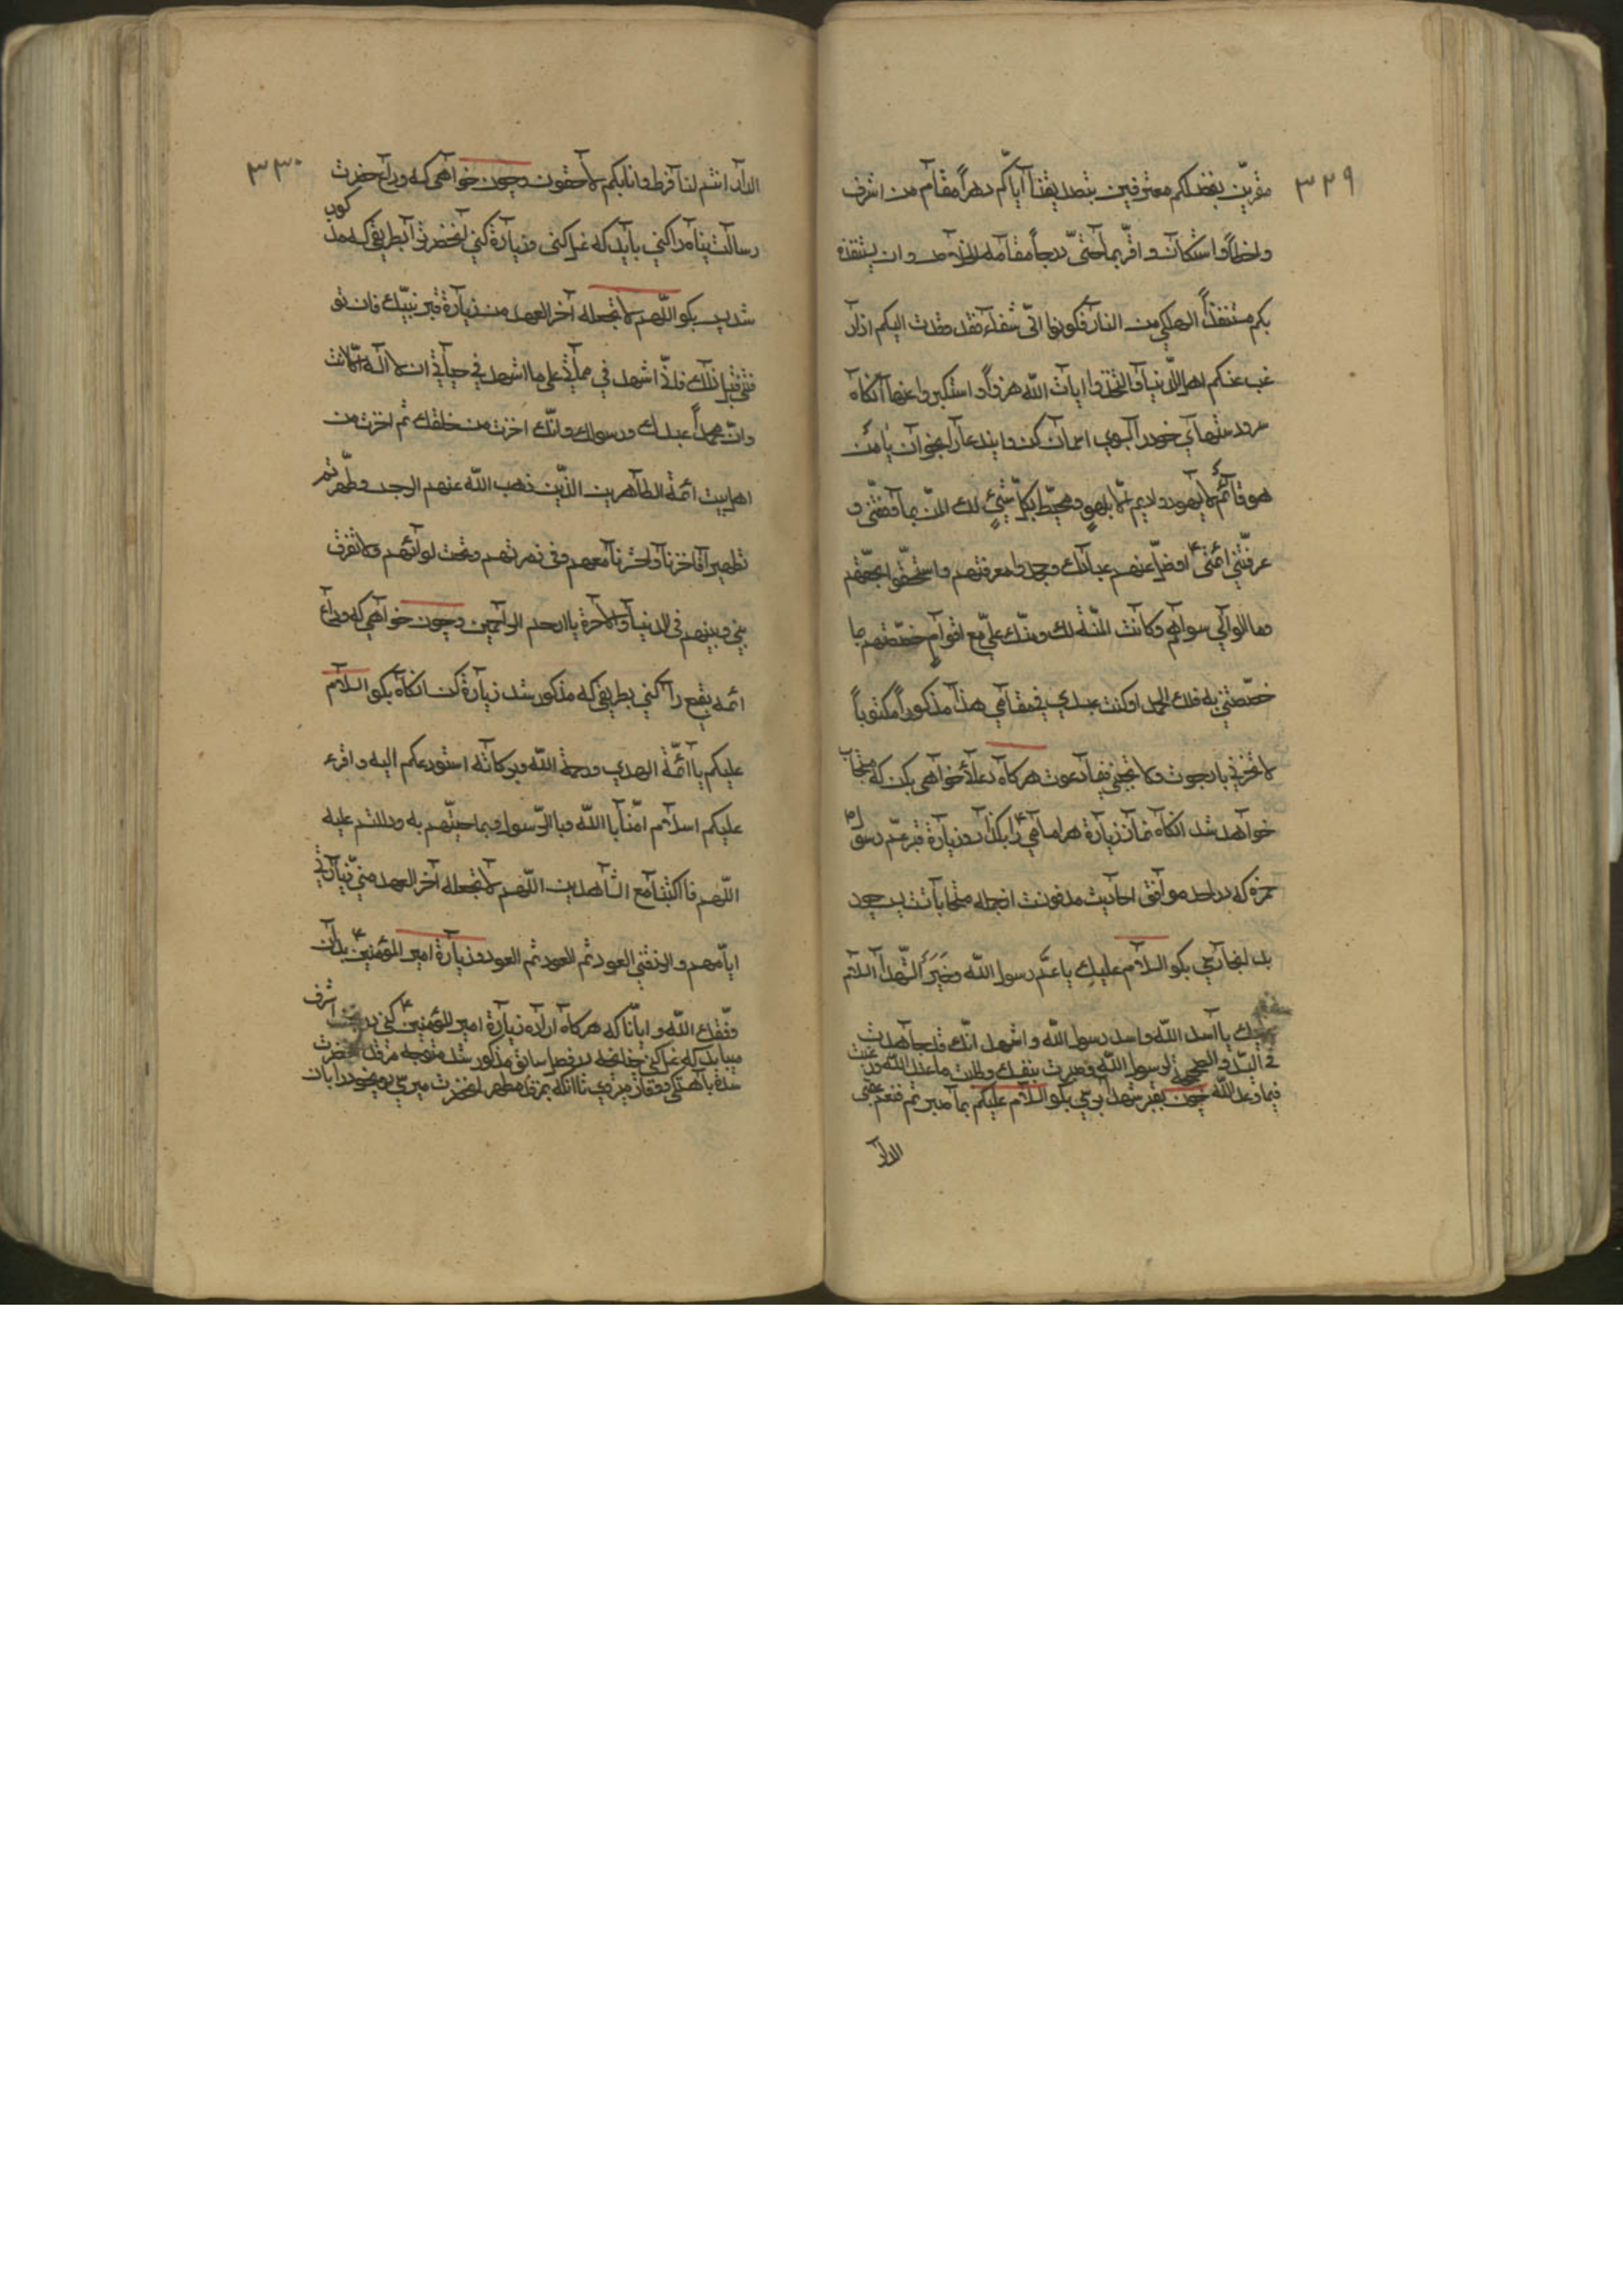 ۳۲۹
مقرین بفضلکم معترفین بتصدیقنا ایاکم دهراً مقام من اشرف
واخطأ واستکان واقرّ بما جنی رجاً مقامه الخلاص وان یستنقذه
بکم مستنقذ الهلکی من النار فکونوا الیّ شفعاء فقد وفدت الیکم اذ
رغب عنکم اهل الدنیا واتخذوا ایات الله هزواً واستکبروا عنها آنکاه
سر و دستهای خود را بسوی اسمان کن و این دعا را بخوان یا من
هو قائم لا یسهو ودایم لا یلهو ومحیط بکلّ شیئ لك المنّ بما وفقتنی و
عرفتنی ائمتی اذ ضلّ عنهم عبادك وجهلوا معرفتهم واستخفّوا بحقّهم
ومالوا الی سواهم وکانت المنّة لك ومنّك علیّ مع اقوام خصّصتهم بما
خصّصتنی به فلك الحمد اذ کنت عندك فی مقامی هذا مذکوراً مکتوباً
لا تحرنی ما رجوت ولا تخیبنی فیما دعوت هرکاه دعا خواهی بکن که مستجاب
خواهد شد آنکاه نماز زیارة هر امامی را بکذار و زیارة قبر عمّ رسول
حمزه که در احد موافق احادیث مدفونست از جمله مستحبا تست پس چون
بدانجا رسی بکو السلام علیك یا عمّ رسول الله وخَیرَ الشهدا السلام
علیك یا اسد الله واسد رسول الله واشهد انّك قد جاهدت
فی الله و نصحت لرسول الله وصبرت بنفسك وطلبت ما عند الله ورغبت
فیما وعد الله چون بقبر شهدا برسی بکو السلام علیکم بما صبرتم فنعم عقبی
الدار
۳۳۰
الدار انتم لنا فرط وانا بکم لاحقون وچون خواهی که وداع حضرت
رسالت پناه را کنی باید که غسل کنی وزیارة کنی آنحضرت را بطریقی که مذکور
شد پس بکو اللّهم لا تجعله آخر العهد من زیارة قبر نبیّك فان تو
فیتنی قبل ذلك فانّی اشهد فی مماتی علی ما اشهد فی حیاتی ان لا اله الّا انت
وانّ محمداً عبدك ورسولك وانّك اخترته من خلقك ثم اخترت من
اهل بیت ائمة الطاهرین الذین ذهب الله عنهم الرجس وطهّرتهم
تطهیرا فاحشرنا واحشرنا معهم وفی زمرتهم وتحت لوائهم ولا تفرق
بینی وبینهم فی الدنیا والآخرة یا ارحم الراحمین وچون خواهی که وداع
ائمه بقیع را کنی بطریقی که مذکور شد زیارة کن انکاه بکو السلام
علیکم یا ائمّة الهدی ورحمة الله وبرکاته استودعکم الیه واقرء
علیکم السلام امنّا بالله وبالرّسول وبما جئتم به ودللتم علیه
اللّهم فاکتبنا مع الشاهدین اللّهم لا تجعله آخر العهد منی زیارتی
ایاهم وارزقنی العود ثم العود ثم العود وزیارة امیر المؤمنین بدان
وفّقك الله وایانا که هرکاه اراده زیارة امیر المؤمنین کنی در نجف اشرف
میباید که غسل کنی چنانچه در فصل سابق مذکور شد متوجه مرقد آنحضرت
شده باهستکی ووقار میروی تا آنکه بمرقد مطهر آنحضرت میرسی رو بخود را بان